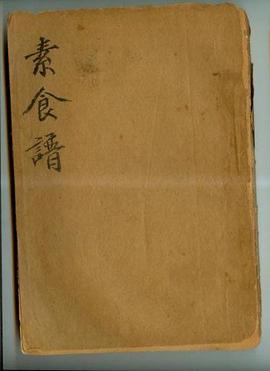 素食譜